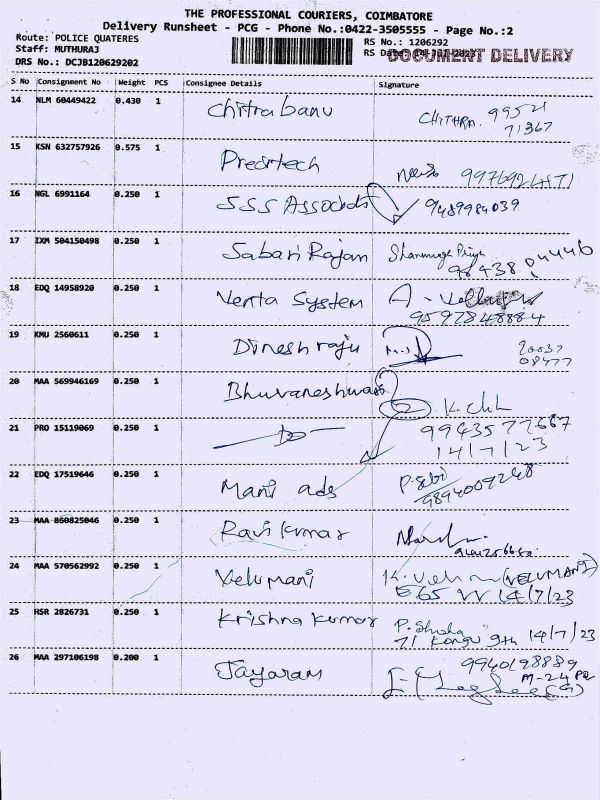 THE PROFESSIONAL COURIERS, COIMBATORE
Delivery Runsheet - PCG - Phone No.:0422-3505555 - Page No.:2
Route: POLICE QUATERES
RS No.: 1206292
Staff: MUTHURAJ
RS Date: 14-Jul-2023
DOCUMENT DELIVERY
DRS No.: DCJB120629202
S No Consignment No Weight PCS Consignee Details Signature
14 NLM 60449422 0.430 1 Chitra banu CHITHRA. 99521
71367
15 KSN 632757926 0.575 1 Preditech
16 NGL 6991164 0.250 1 SSS Associats 9489984039
17 IXM 504150498 0.250 1 Sabari Rajan Shanmuga Priya
98438 04446
18 EDQ 14958920 0.250 1 Venta System
9597848884
19 KMU 2560611 0.250 1 Dineshraju
08477
20 MAA 569946169 0.250 1 Bhuvaneshwari
21 PRO 15119069 0.250 1 9943577667
14/7/23
22 EDQ 17519646 0.250 1 Mani ads
9894009248
23 MAA 860825046 0.250 1 Ravi Kumar
24 MAA 570562992 0.250 1 Velumani (VELUMANI)
E65 14/7/23
25 HSR 2826731 0.250 1 Krishna Kumar
71 Kongu 9th 14/7/23
26 MAA 297106198 0.200 1 Jayaram 9940198889
M-24